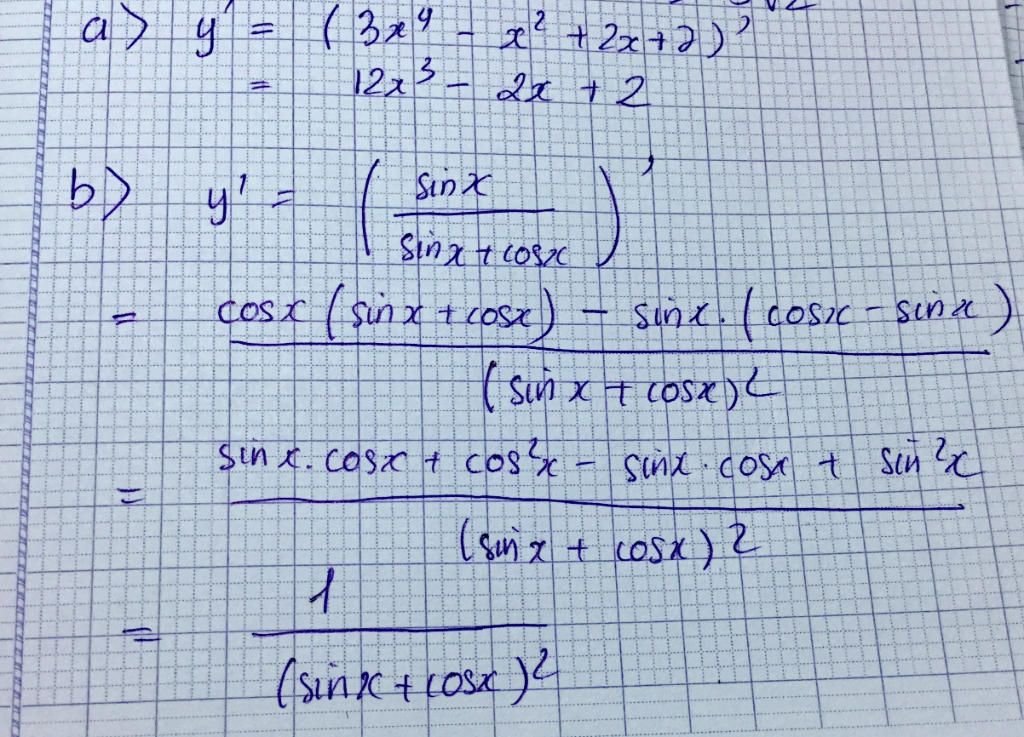 a> y' = (3x⁴ - x² + 2x + 2)'
= 12x³ - 2x + 2
b> y' = (sinx / sinx + cosx)'
= cosx (sinx + cosx) - sinx. (cosx - sinx) / (sinx + cosx)²
= sinx. cosx + cos²x - sinx. cosx + sin²x / (sinx + cosx)²
= 1 / (sinx + cosx)²